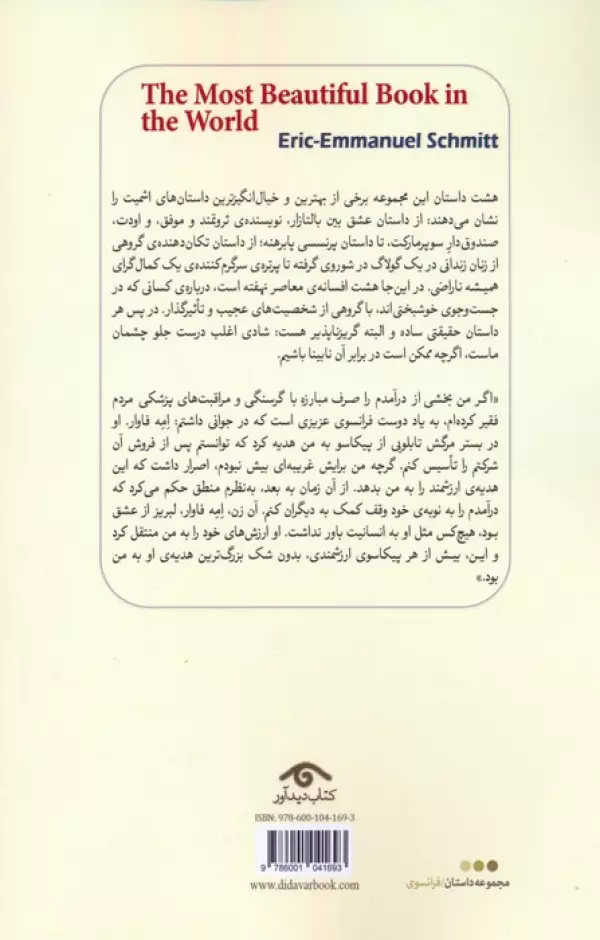 The Most Beautiful Book in
the World
Eric-Emmanuel Schmitt
هشت داستان این مجموعه برخی از بهترین و خیال‌انگیزترین داستان‌های اشمیت را
نشان می‌دهند: از داستان عشق بین بالتازار، نویسنده‌ی ثروتمند و موفق، و اودت،
صندوق‌دارِ سوپرمارکت، تا داستان پرنسسی پابرهنه؛ از داستان تکان‌دهنده‌ی گروهی
از زنان زندانی در یک گولاگ در شوروی گرفته تا پرتره‌ی سرگرم‌کننده‌ی یک کمال‌گرای
همیشه ناراضی. در این‌جا هشت افسانه‌ی معاصر نهفته است، درباره‌ی کسانی که در
جست‌وجوی خوشبختی‌اند، با گروهی از شخصیت‌های عجیب و تأثیرگذار. در پس هر
داستان حقیقتی ساده و البته گریزناپذیر هست: شادی اغلب درست جلو چشمان
ماست، اگرچه ممکن است در برابر آن نابینا باشیم.
«اگر من بخشی از درآمدم را صرف مبارزه با گرسنگی و مراقبت‌های پزشکی مردم
فقیر کرده‌ام، به یاد دوست فرانسوی عزیزی است که در جوانی داشتم: اِمِه فاوار. او
در بستر مرگش تابلویی از پیکاسو به من هدیه کرد که توانستم پس از فروش آن
شرکتم را تأسیس کنم. گرچه من برایش غریبه‌ای بیش نبودم، اصرار داشت که این
هدیه‌ی ارزشمند را به من بدهد. از آن زمان به بعد، به‌نظرم منطق حکم می‌کرد که
درآمدم را به نوبه‌ی خود وقف کمک به دیگران کنم. آن زن، اِمِه فاوار، لبریز از عشق
بود، هیچ‌کس مثل او به انسانیت باور نداشت. او ارزش‌های خود را به من منتقل کرد
و این، بیش از هر پیکاسوی ارزشمندی، بدون شک بزرگ‌ترین هدیه‌ی او به من
بود.»
کتاب دیدآور
ISBN: 978-600-104-169-3
9 786001 041693
www.didavarbook.com
مجموعه داستان/فرانسوی